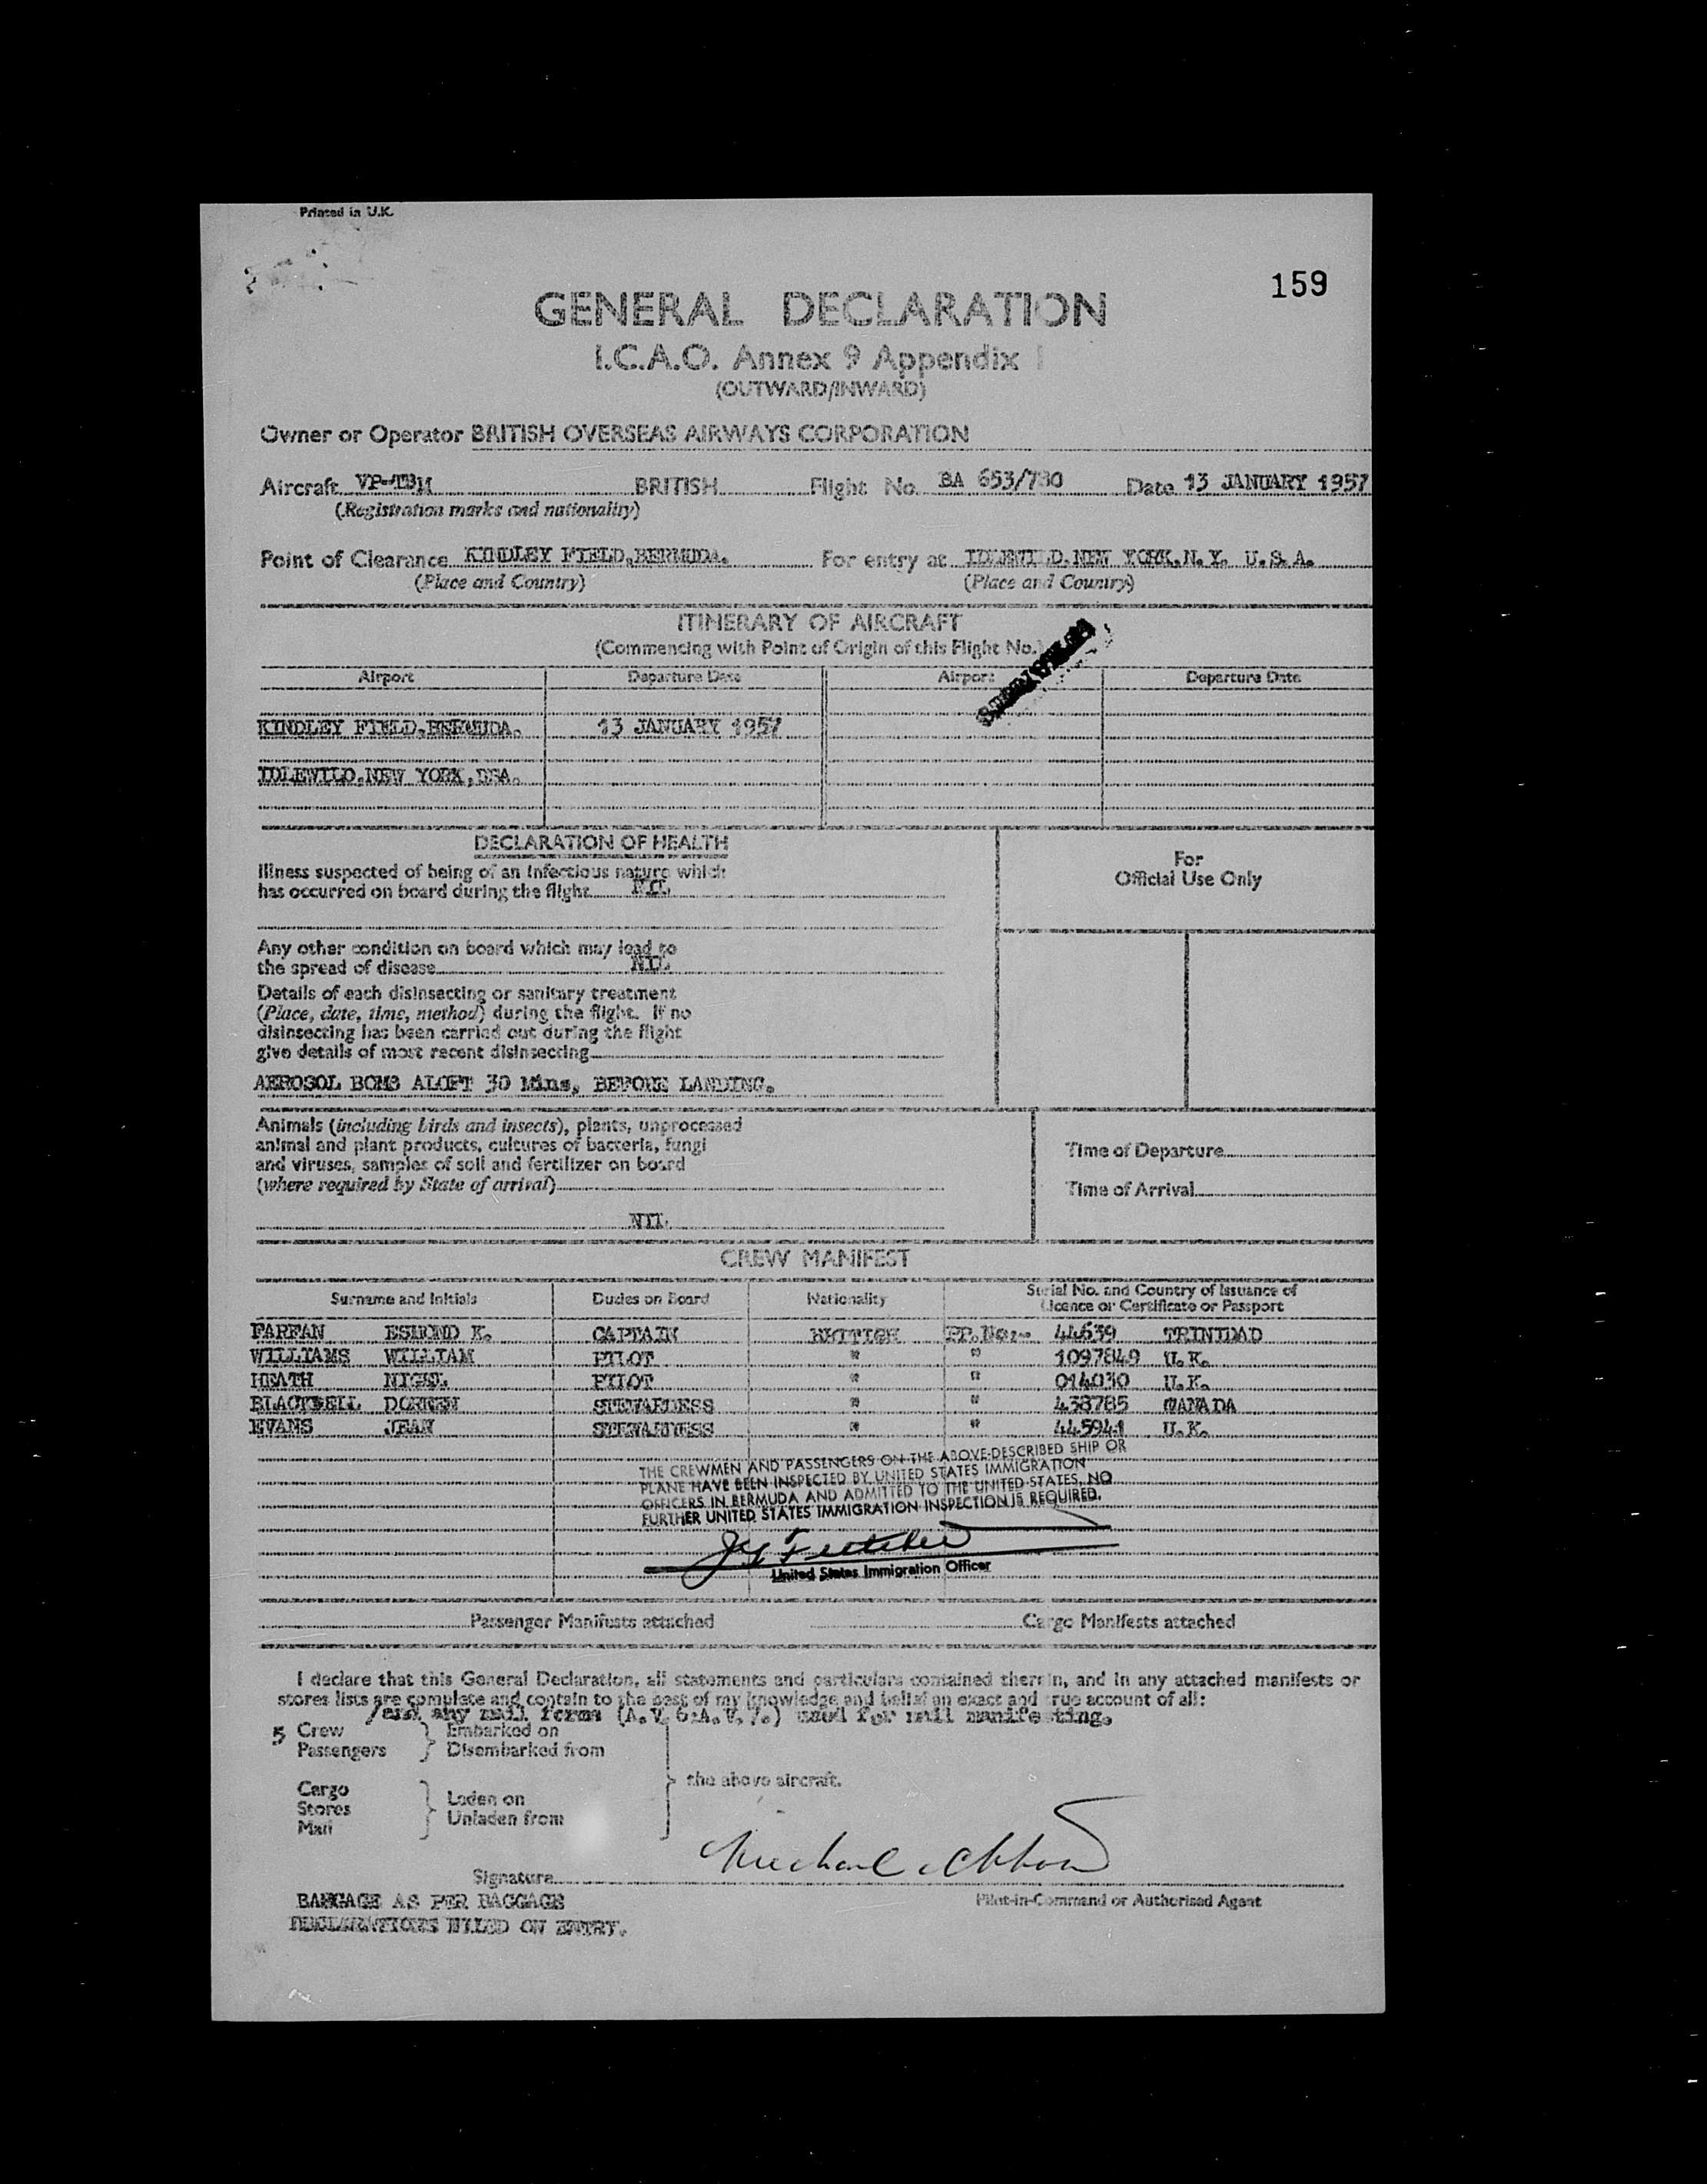 Printed in U.K.
159
GENERAL DECLARATION
I.C.A.O. Annex 9 Appendix I
(OUTWARD/INWARD)
Owner or Operator BRITISH OVERSEAS AIRWAYS CORPORATION
Aircraft VP-TBM BRITISH Flight No. BA 653/780 Date 13 JANUARY 1957
(Registration marks and nationality)
Point of Clearance KINDLEY FIELD, BERMUDA. For entry at IDLEWILD, NEW YORK, N.Y. U.S.A.
(Place and Country) (Place and Country)
ITINERARY OF AIRCRAFT
(Commencing with Point of Origin of this Flight No.)
Airport Departure Date Airport Departure Date
KINDLEY FIELD, BERMUDA. 13 JANUARY 1957
IDLEWILD, NEW YORK, USA.
DECLARATION OF HEALTH
For
Official Use Only
Illness suspected of being of an infectious nature which
has occurred on board during the flight NIL
Any other condition on board which may lead to
the spread of disease NIL
Details of each disinsecting or sanitary treatment
(Place, date, time, method) during the flight. If no
disinsecting has been carried out during the flight
give details of most recent disinsecting
AEROSOL BOMB ALOFT 30 Mins, BEFORE LANDING.
Animals (including birds and insects), plants, unprocessed
animal and plant products, cultures of bacteria, fungi
and viruses, samples of soil and fertilizer on board
(where required by State of arrival)
NIL
Time of Departure
Time of Arrival
CREW MANIFEST
Surname and Initials Duties on Board Nationality Serial No. and Country of Issuance of
Licence or Certificate or Passport
FARFAN ESMOND K. CAPTAIN BRITISH PP.No:- 44639 TRINIDAD
WILLIAMS WILLIAM PILOT " " 1097849 U.K.
HEATH NIGEL PILOT " " 014030 U.K.
BLACKWELL DOREEN STEWARDESS " " 438785 CANADA
EVANS JEAN STEWARDESS " " 445941 U.K.
THE CREWMEN AND PASSENGERS ON THE ABOVE-DESCRIBED SHIP OR
PLANE HAVE BEEN INSPECTED BY UNITED STATES IMMIGRATION
OFFICERS IN BERMUDA AND ADMITTED TO THE UNITED STATES. NO
FURTHER UNITED STATES IMMIGRATION INSPECTION IS REQUIRED.
United States Immigration Officer
Passenger Manifests attached Cargo Manifests attached
I declare that this General Declaration, all statements and particulars contained therein, and in any attached manifests or
stores lists are complete and contain to the best of my knowledge and belief an exact and true account of all:
/and any mail forms (A.V. 6:A.V. 7.) used for mail manifesting.
5 Crew Embarked on
Passengers Disembarked from
the above aircraft.
Cargo
Stores Laden on
Mail Unladen from
Signature
Pilot-in-Command or Authorised Agent
BAGGAGE AS PER BAGGAGE
DECLARATIONS FILED ON ENTRY.